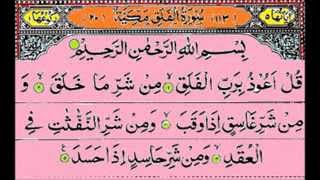 سُوْرَةُ الْفَلَقِ مَكِّيَّةٌ ١١٣ ٢٠
بِسْمِ اللهِ الرَّحْمٰنِ الرَّحِيْمِ
قُلْ اَعُوْذُ بِرَبِّ الْفَلَقِ ۙ مِنْ شَرِّ مَا خَلَقَ ۙ وَ
مِنْ شَرِّ غَاسِقٍ اِذَا وَقَبَ ۙ وَمِنْ شَرِّ النَّفّٰثٰتِ فِي
الْعُقَدِ ۙ وَمِنْ شَرِّ حَاسِدٍ اِذَا حَسَدَ